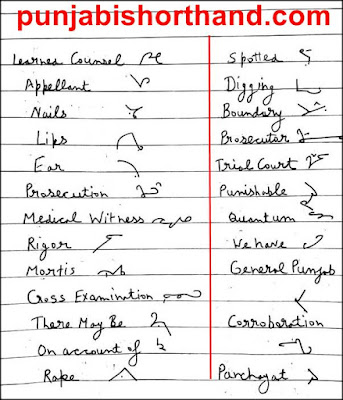 punjabishorthand.com
Learned Counsel
Appellant
Nails
Lips
Ear
Prosecution
Medical Witness
Rigor
Mortis
Cross Examination
There May Be
On account of
Rape
Spotted
Digging
Boundary
Prosecutor
Trial Court
Punishable
Quantum
We have
General Punjab
Corroboration
Panchayat